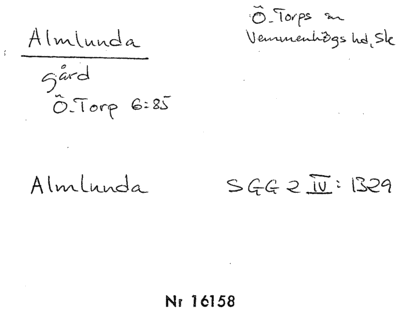 Almlunda
Ö. Torps sn
Vemmenhögs hd, Sk
gård
Ö. Torp 6:85
Almlunda
SGG 2 IV: 1329
Nr 16158